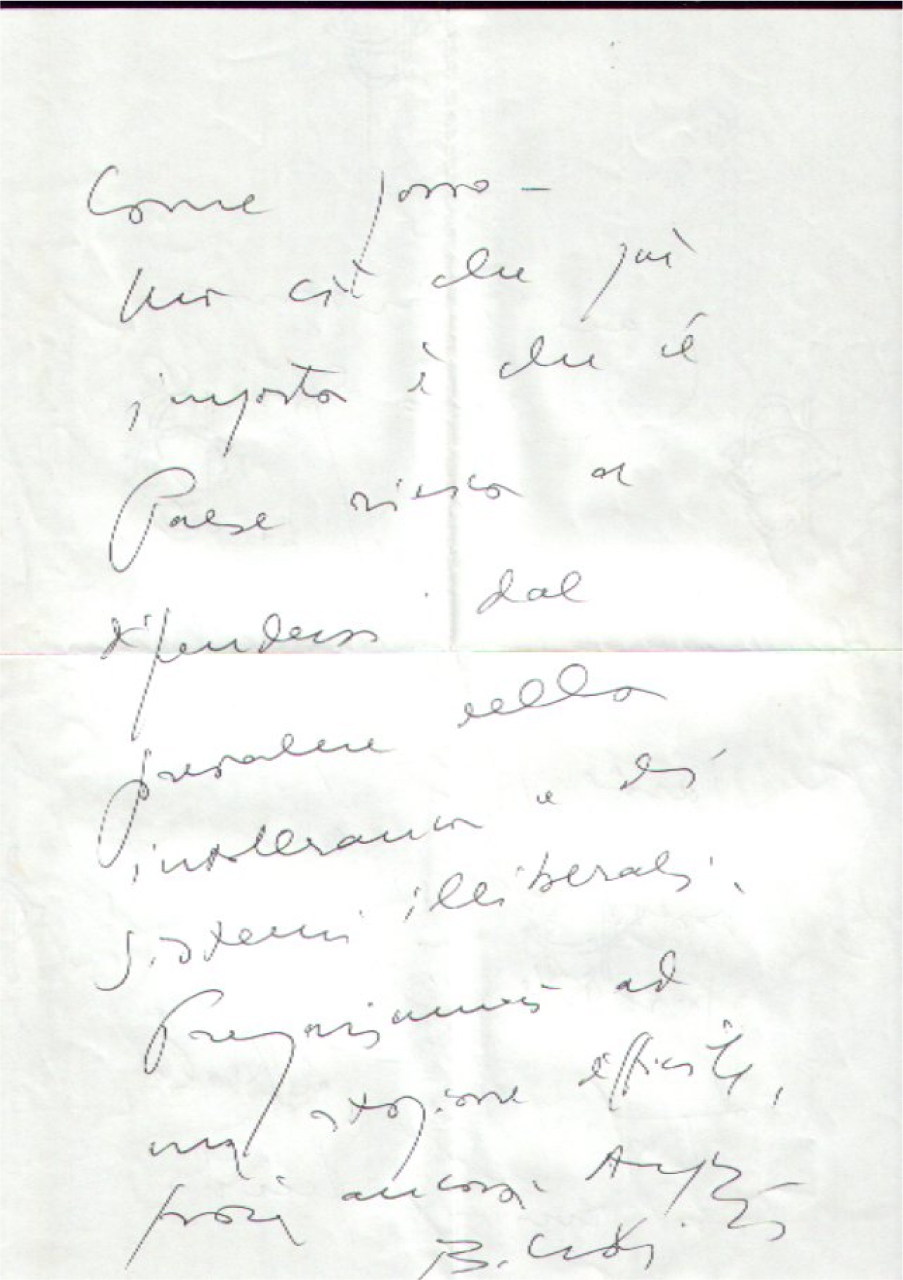 Come posso -
Ma ciò che più
importa è che il
Paese riesca a
difendersi dal
prevalere della
intolleranza e dei
sistemi illiberali.
Prepariamoci ad
una stagione difficile,
ancora.
B. Craxi